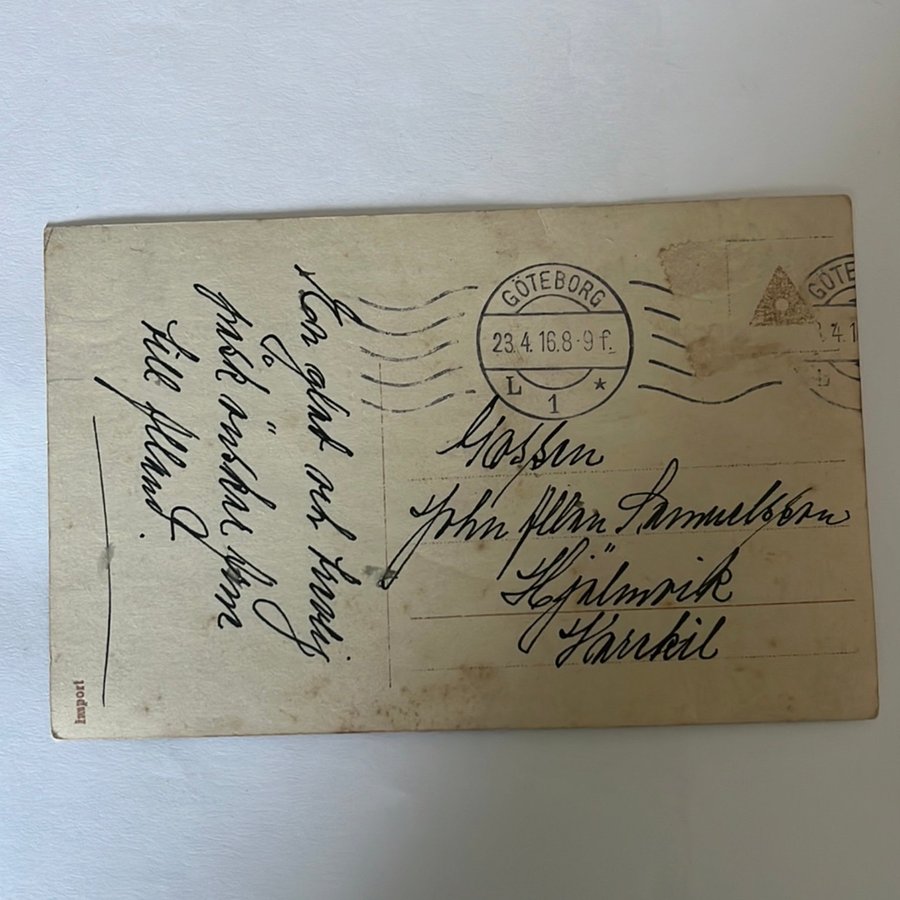 En glad och trevlig
påsk önskar farm
till Alland.
GÖTEBORG
23.4.16.8-9 f.
L 1 *
GÖTE
4.1
L
Gossen
John Allan Samuelsson
Hjälmvik
Kärrkil
Import